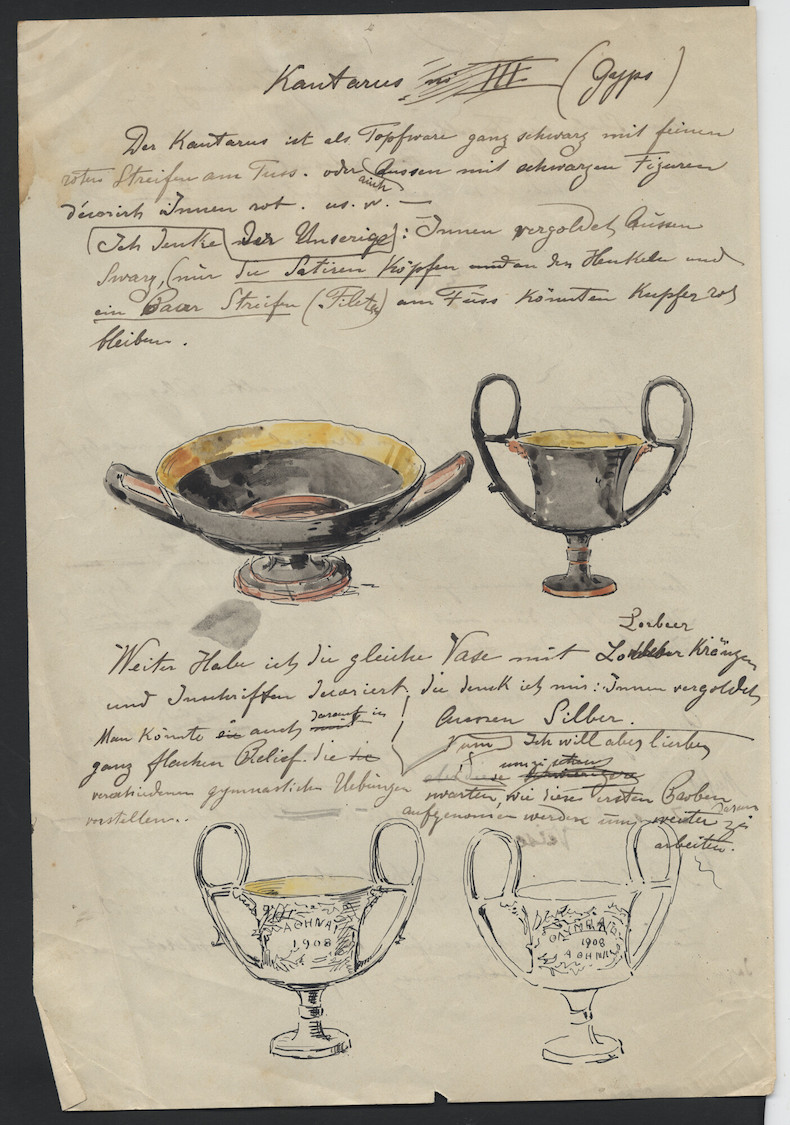 Kantarus no III (Gyps)
Der Kantarus ist als Topfware ganz schwarz mit feinen
roten Streifen am Fuss. oder aussen mit schwarzen Figuren
auch
decorirt Innen rot. us. w. —
(Ich denke der Unserige): Innen vergoldet Aussen
Swarz, (nur die Satiren Köpfen an den Henkeln und
ein Paar Streifen (Filets) am Fuss könnten Kupfer rot
bleiben.
Lorbeer
Weiter Habe ich die gleiche Vase mit Kränzen
und Inschriften decoriert, die denk ich mir: Innen vergoldet
Aussen Silber.
Man könnte auch darauf in
ganz flachen Relief die
verschiedenen gymnastischen Uebungen
vorstellen..
Ich will aber lieber
warten, wie diese ersten Proben
aufgenomen werden um weiter zu
arbeiten.
ΑΘΗΝΑΙ
1908
ΟΛΥΜΠΙΑ
1908
ΑΘΗΝΑΙ